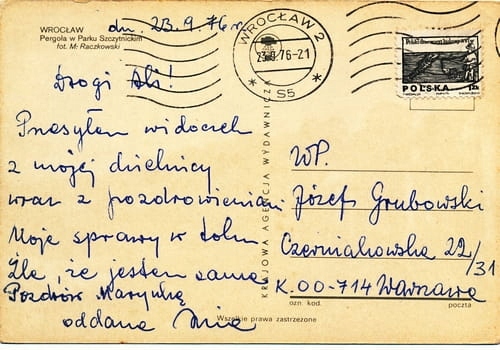 WROCŁAW
Pergola w Parku Szczytnickim
fot. M. Raczkowski
dn. 23.9.76 r.
WROCŁAW 2
23.9.76-21
* S5 *
POLSKA
Drogi Ali!
Przesyłam widoczek
z mojej dzielnicy
wraz z pozdrowieniami
Moje sprawy w toku
Źle, że jestem sama
Pozdrów Marynkę
oddana Mia
KRAJOWA AGENCJA WYDAWNICZA
WP.
Józef Grubowski
Czerniakowska 22/31
K. 00-714 Warszawa
ozn. kod.
poczta
Wszelkie prawa zastrzeżone